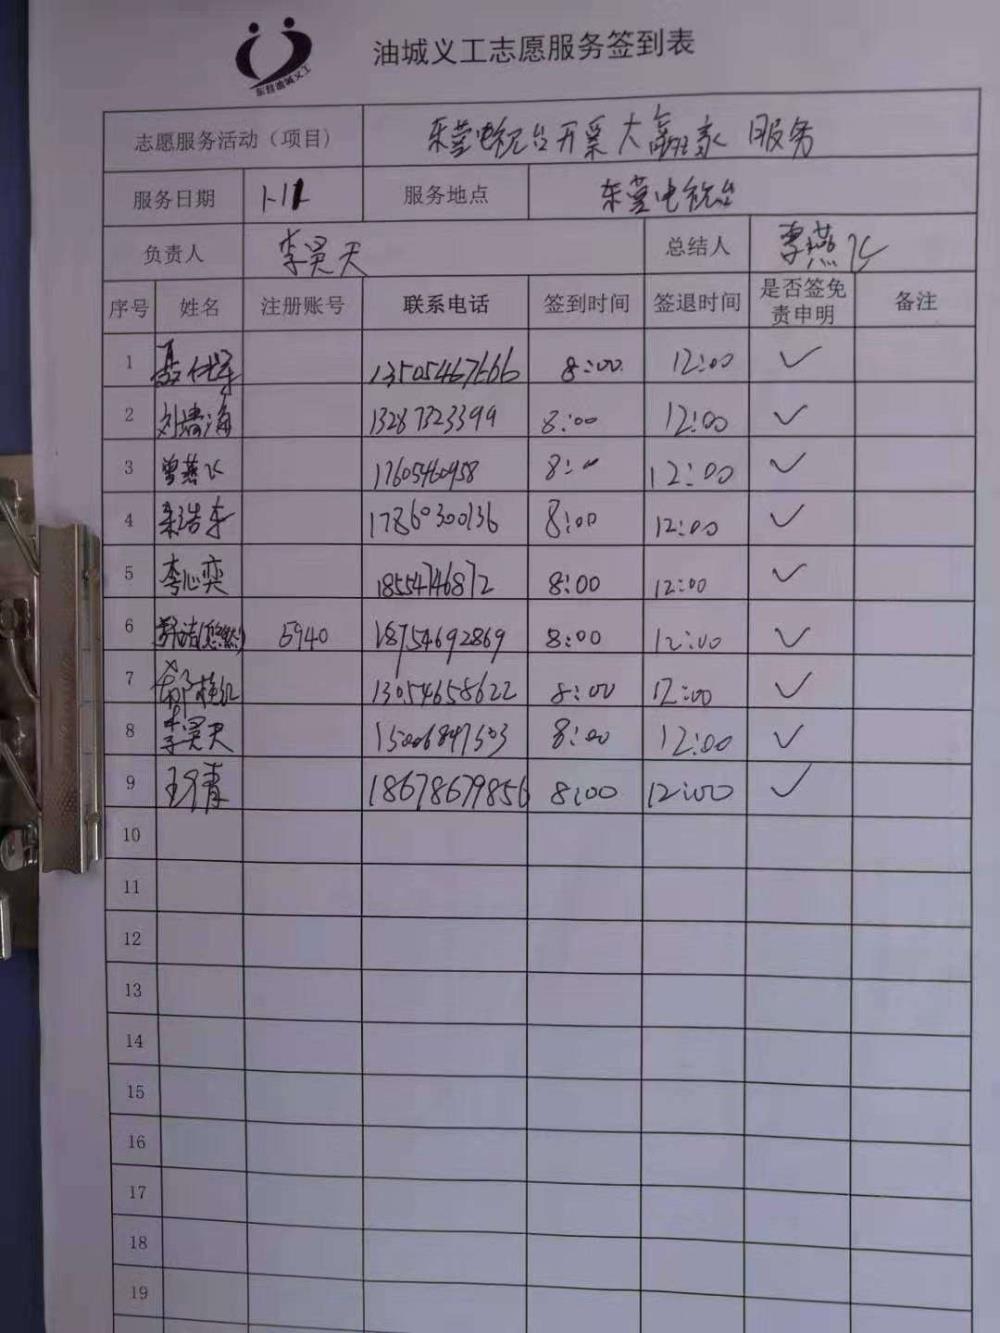 东营油城义工
油城义工志愿服务签到表
志愿服务活动（项目） 东营电视台开票大赢家 服务
服务日期 服务地点 东营电视台
负责人 李昊天 总结人 李燕飞
序号 姓名 注册账号 联系电话 签到时间 签退时间 是否签免责申明 备注
1 13505467666 8:00 12:00 ✓
2 刘靖海 13287323399 8:00 12:00 ✓
3 曾燕飞 17605460958 8:00 12:00 ✓
4 17860300136 8:00 12:00 ✓
5 李心奕 18554746872 8:00 12:00 ✓
6 5940 18754692869 8:00 12:00 ✓
7 13054658622 8:00 12:00 ✓
8 李昊天 15006847503 8:00 12:00 ✓
9 18678679856 8:00 12:00 ✓
10
11
12
13
14
15
16
17
18
19